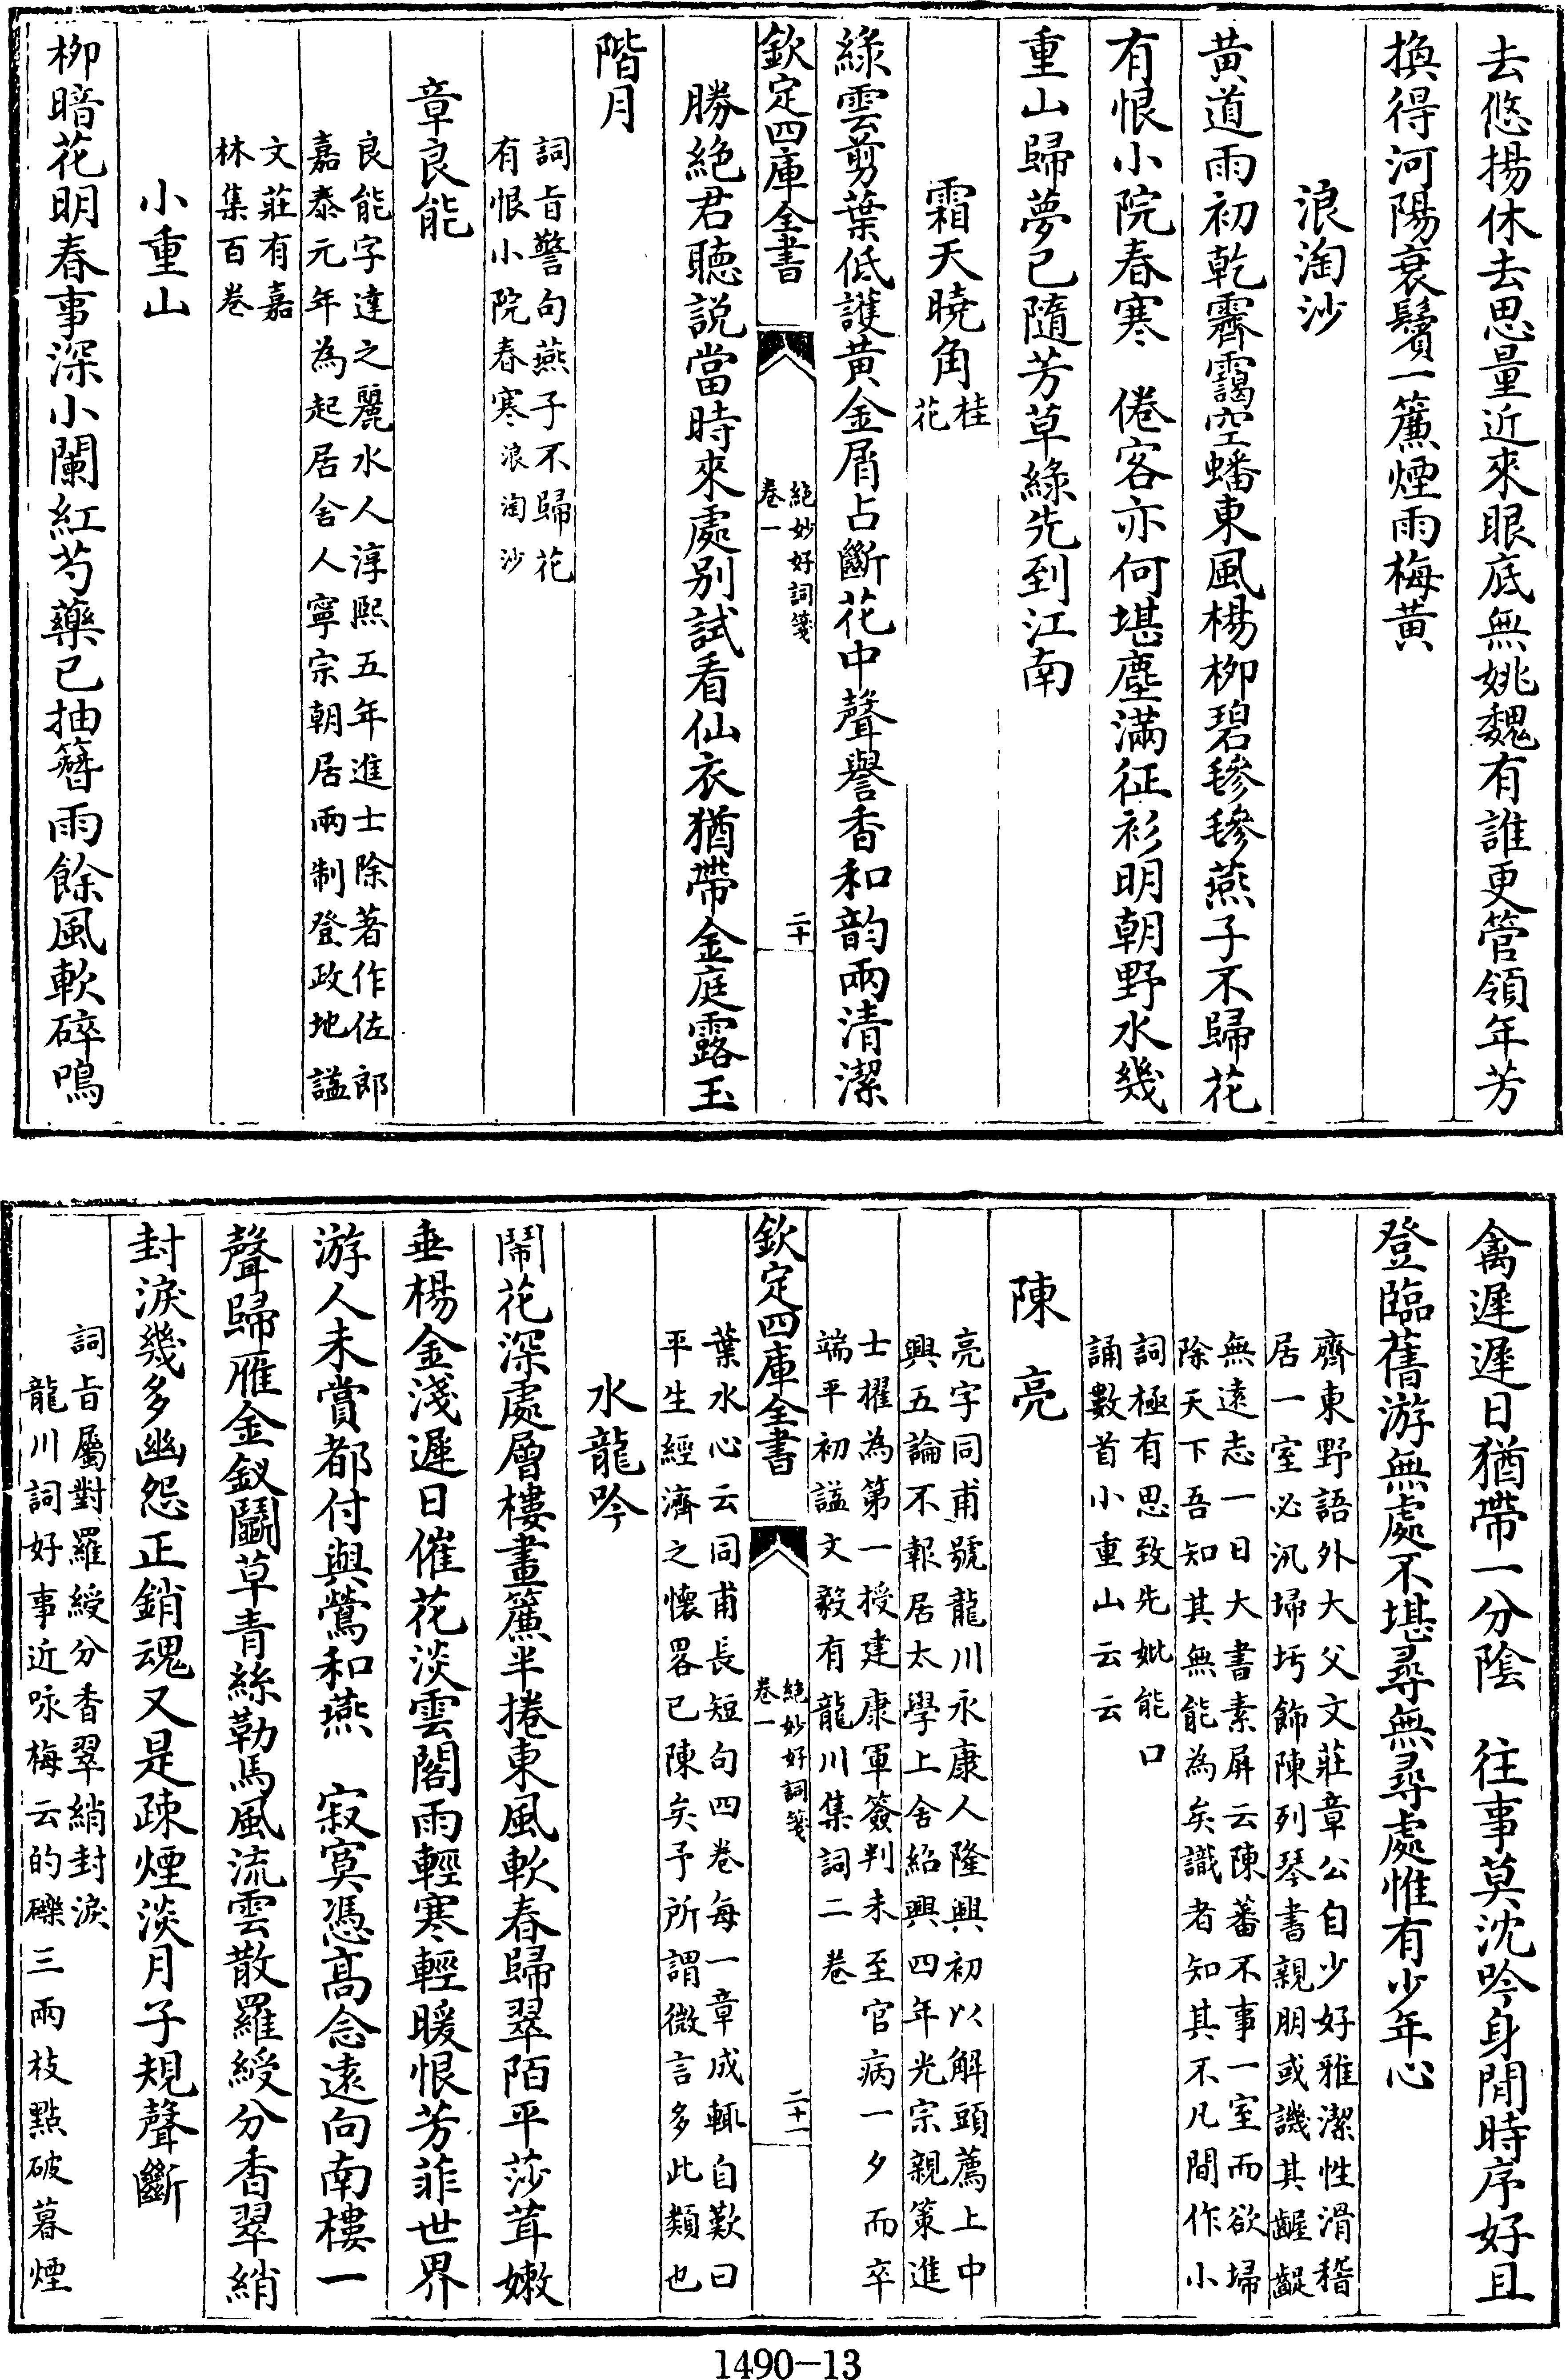 去悠揚休去思量近來眼底無姚魏有誰更管領年芳
換得河陽衰鬢一簾煙雨梅黄
浪淘沙
黄道雨初乾霽靄空蟠東風楊柳碧毵毵燕子不歸花
有恨小院春寒　倦客亦何堪塵滿征衫明朝野水幾
重山歸夢已隨芳草綠先到江南
霜天曉角桂花
綠雲剪葉低護黄金屑占斷花中聲譽香和韵兩清潔
欽定四庫全書
絕妙好詞箋
卷一
二十
勝絶君聽説當時來處别試看仙衣猶帶金庭露玉
階月
詞旨警句燕子不歸花
有恨小院春寒浪淘沙
章良能
良能字達之麗水人淳熙五年進士除著作佐郎
嘉泰元年為起居舍人寧宗朝居兩制登政地諡
文莊有嘉
林集百卷
小重山
柳暗花明春事深小闌紅芍藥已抽簪雨餘風軟碎鳴
禽遲遲日猶帶一分陰　往事莫沈吟身閒時序好且
登臨舊游無處不堪尋無尋處惟有少年心
齊東野語外大父文莊章公自少好雅潔性滑稽
居一室必汛埽圬飾陳列琴書親朋或譏其齷齪
無遠志一日大書素屏云陳蕃不事一室而欲埽
除天下吾知其無能為矣識者知其不凡間作小
詞極有思致先妣能口
誦數首小重山云云
陳亮
亮字同甫號龍川永康人隆興初以解頭薦上中
興五論不報居太學上舍紹興四年光宗親策進
士擢為第一授建康軍簽判未至官病一夕而卒
端平初諡文毅有龍川集詞二卷
欽定四庫全書
絕妙好詞箋
卷一
二十一
葉水心云同甫長短句四卷每一章成輒自歎曰
平生經濟之懷畧已陳矣予所謂微言多此類也
水龍吟
鬧花深處層樓畫簾半捲東風軟春歸翠陌平莎茸嫩
垂楊金淺遲日催花淡雲閣雨輕寒輕暖恨芳菲世界
游人未賞都付與鶯和燕　寂寞憑髙念遠向南樓一
聲歸雁金釵鬭草青絲勒馬風流雲散羅綬分香翠綃
封淚幾多幽怨正銷魂又是疎煙淡月子規聲斷
詞旨屬對羅綬分香翠綃封淚
龍川詞好事近咏梅云的皪三兩枝點破暮煙
1490-13